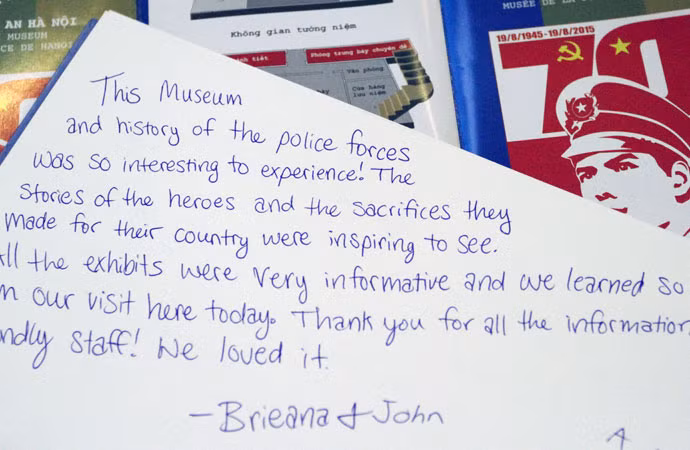 AN HÀ NỘI
MUSEUM
CE DE HANOI
Không gian tưởng niệm
Phòng trưng bày chuyên đề
Văn phòng
Cửa hàng
lưu niệm
MUSÉE DE LA
19/8/1945-19/8/2015
70
This Museum
and history of the police forces
was so interesting to experience! The
Stories of the heroes and the sacrifices they
made for their country were inspiring to see.
All the exhibits were very informative and we learned so
our visit here today. Thank you for all the information
staff! We loved it.
— Brieana & John